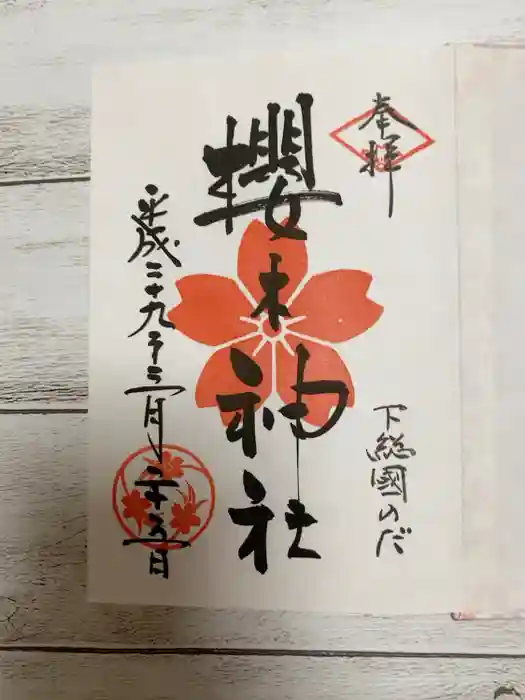 奉拝
下総國のだ
櫻木神社
平成二十九年三月二十六日